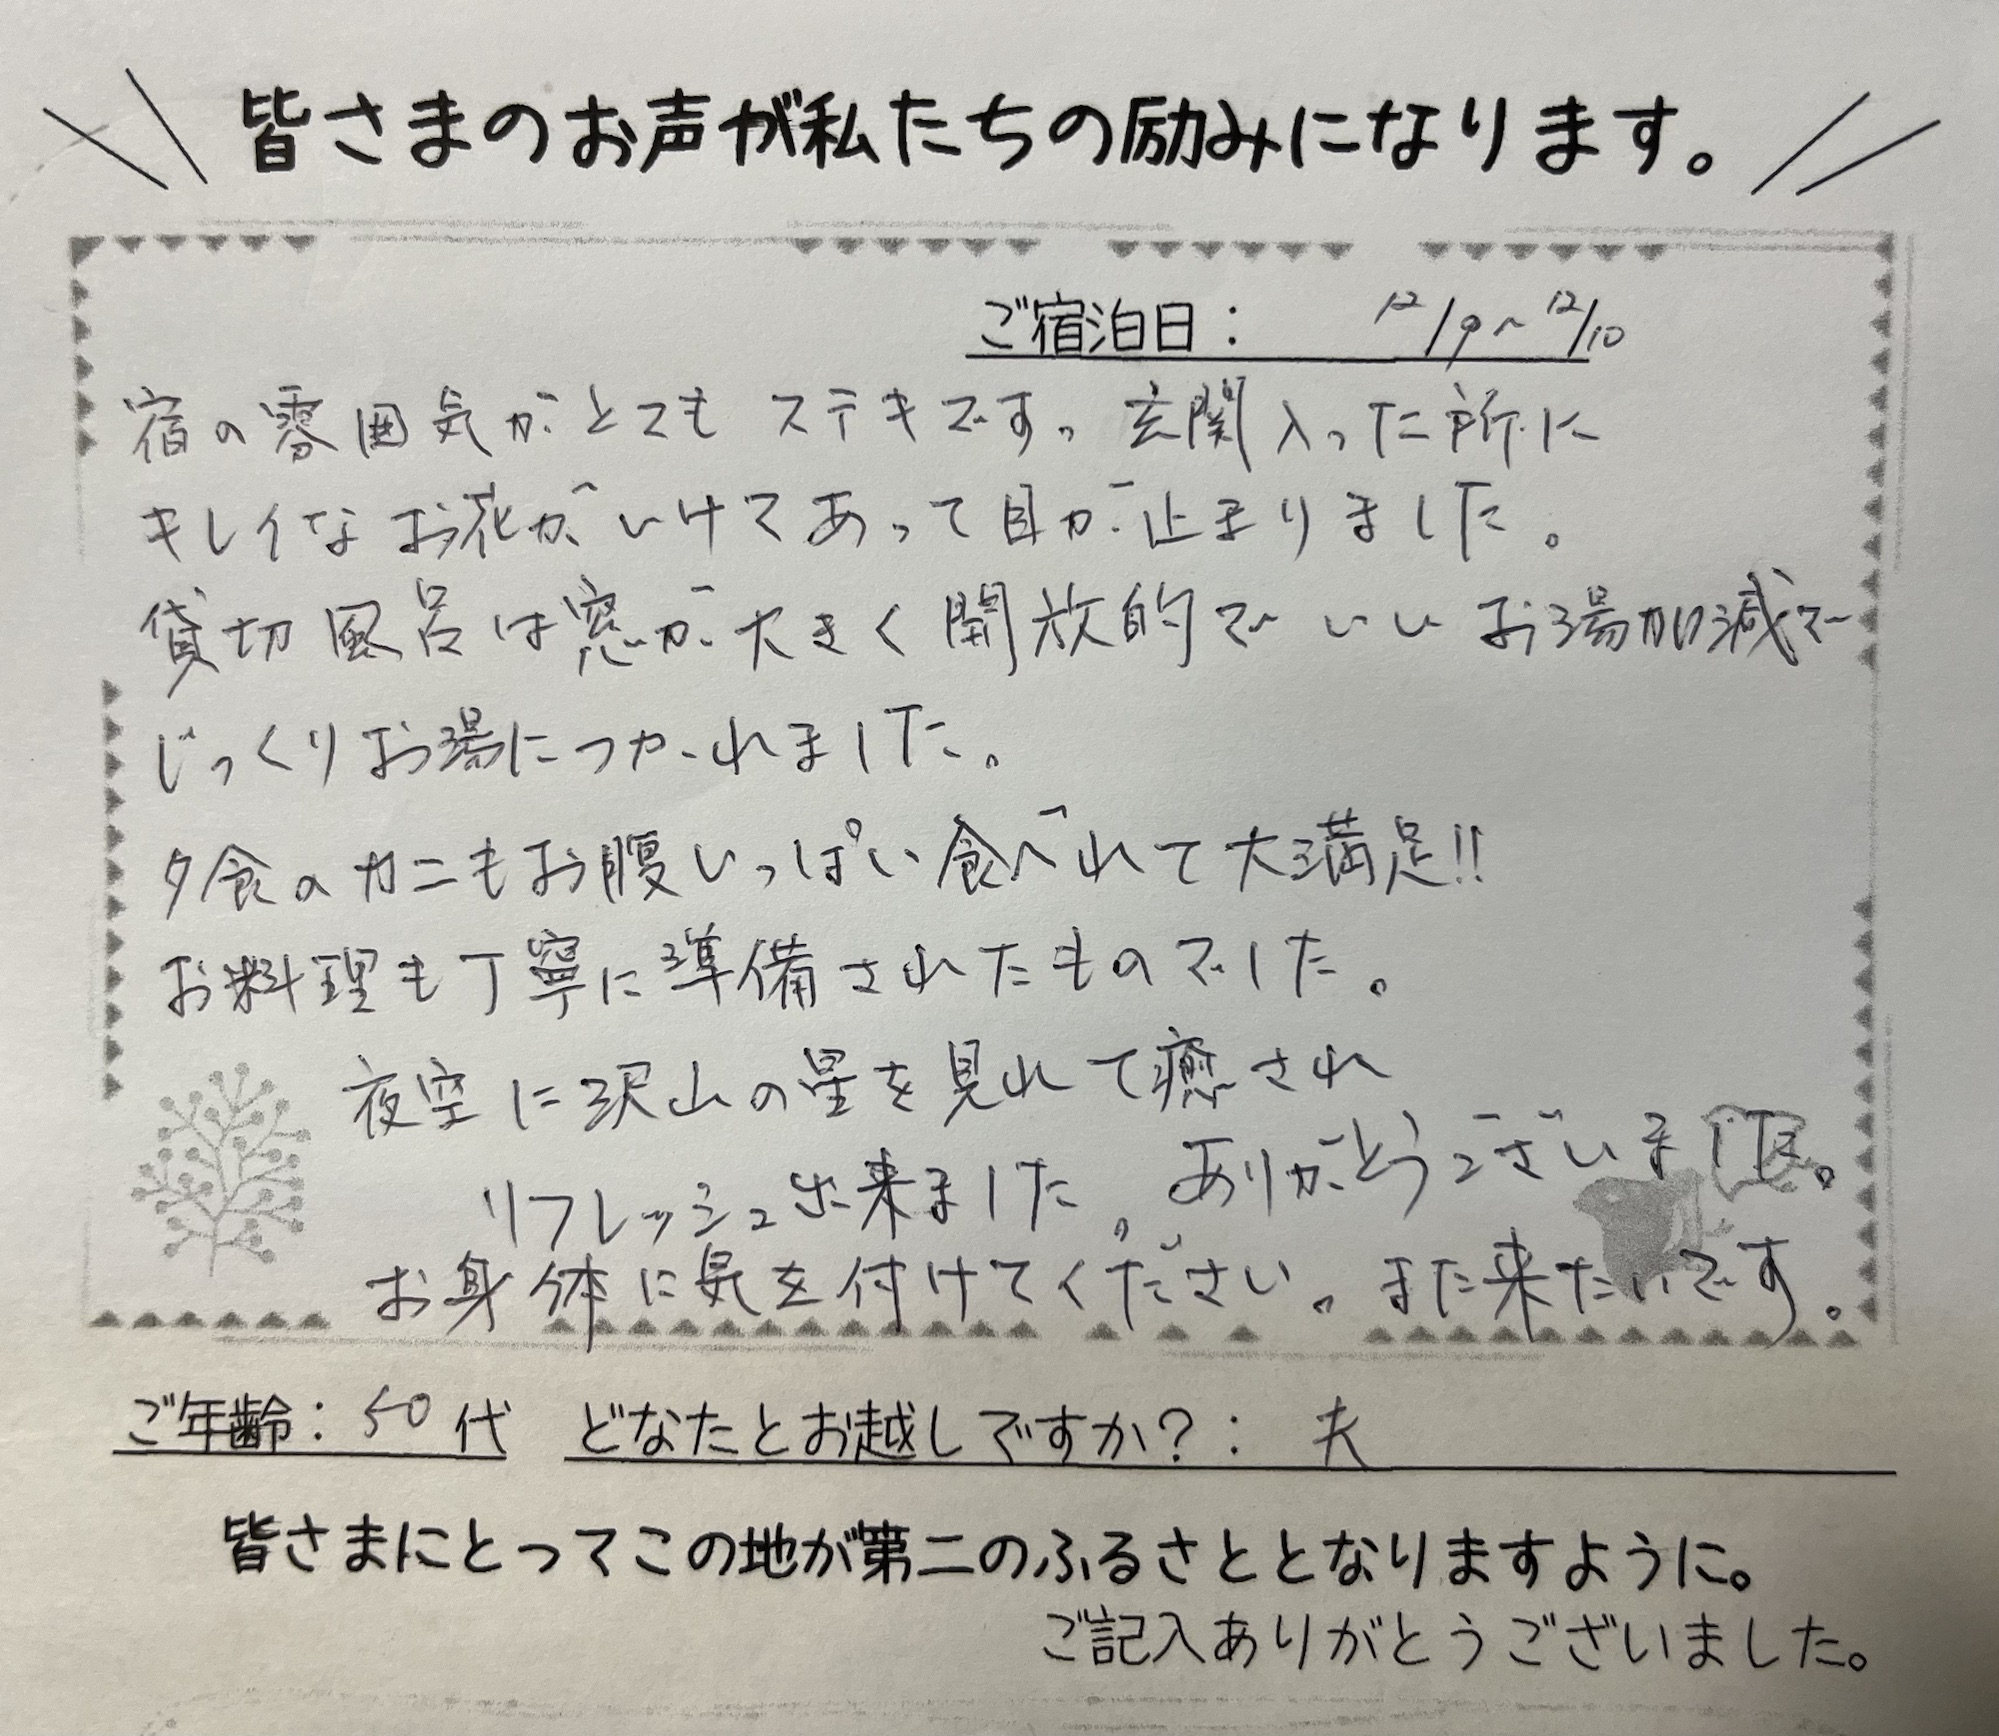 皆さまのお声が私たちの励みになります。
ご宿泊日： 12/9〜12/10
宿の雰囲気がとてもステキです。玄関入った所に
キレイなお花がいけてあって目が止まりました。
貸切風呂は窓が大きく開放的でいいお湯加減で
じっくりお湯につかれました。
夕食のカニもお腹いっぱい食べれて大満足!!
お料理も丁寧に準備されたものでした。
夜空に沢山の星を見れて癒され
リフレッシュ出来ました。ありがとうございました。
お身体に気を付けてください。また来たいです。
ご年齢：50代 どなたとお越しですか？： 夫
皆さまにとってこの地が第二のふるさととなりますように。
ご記入ありがとうございました。